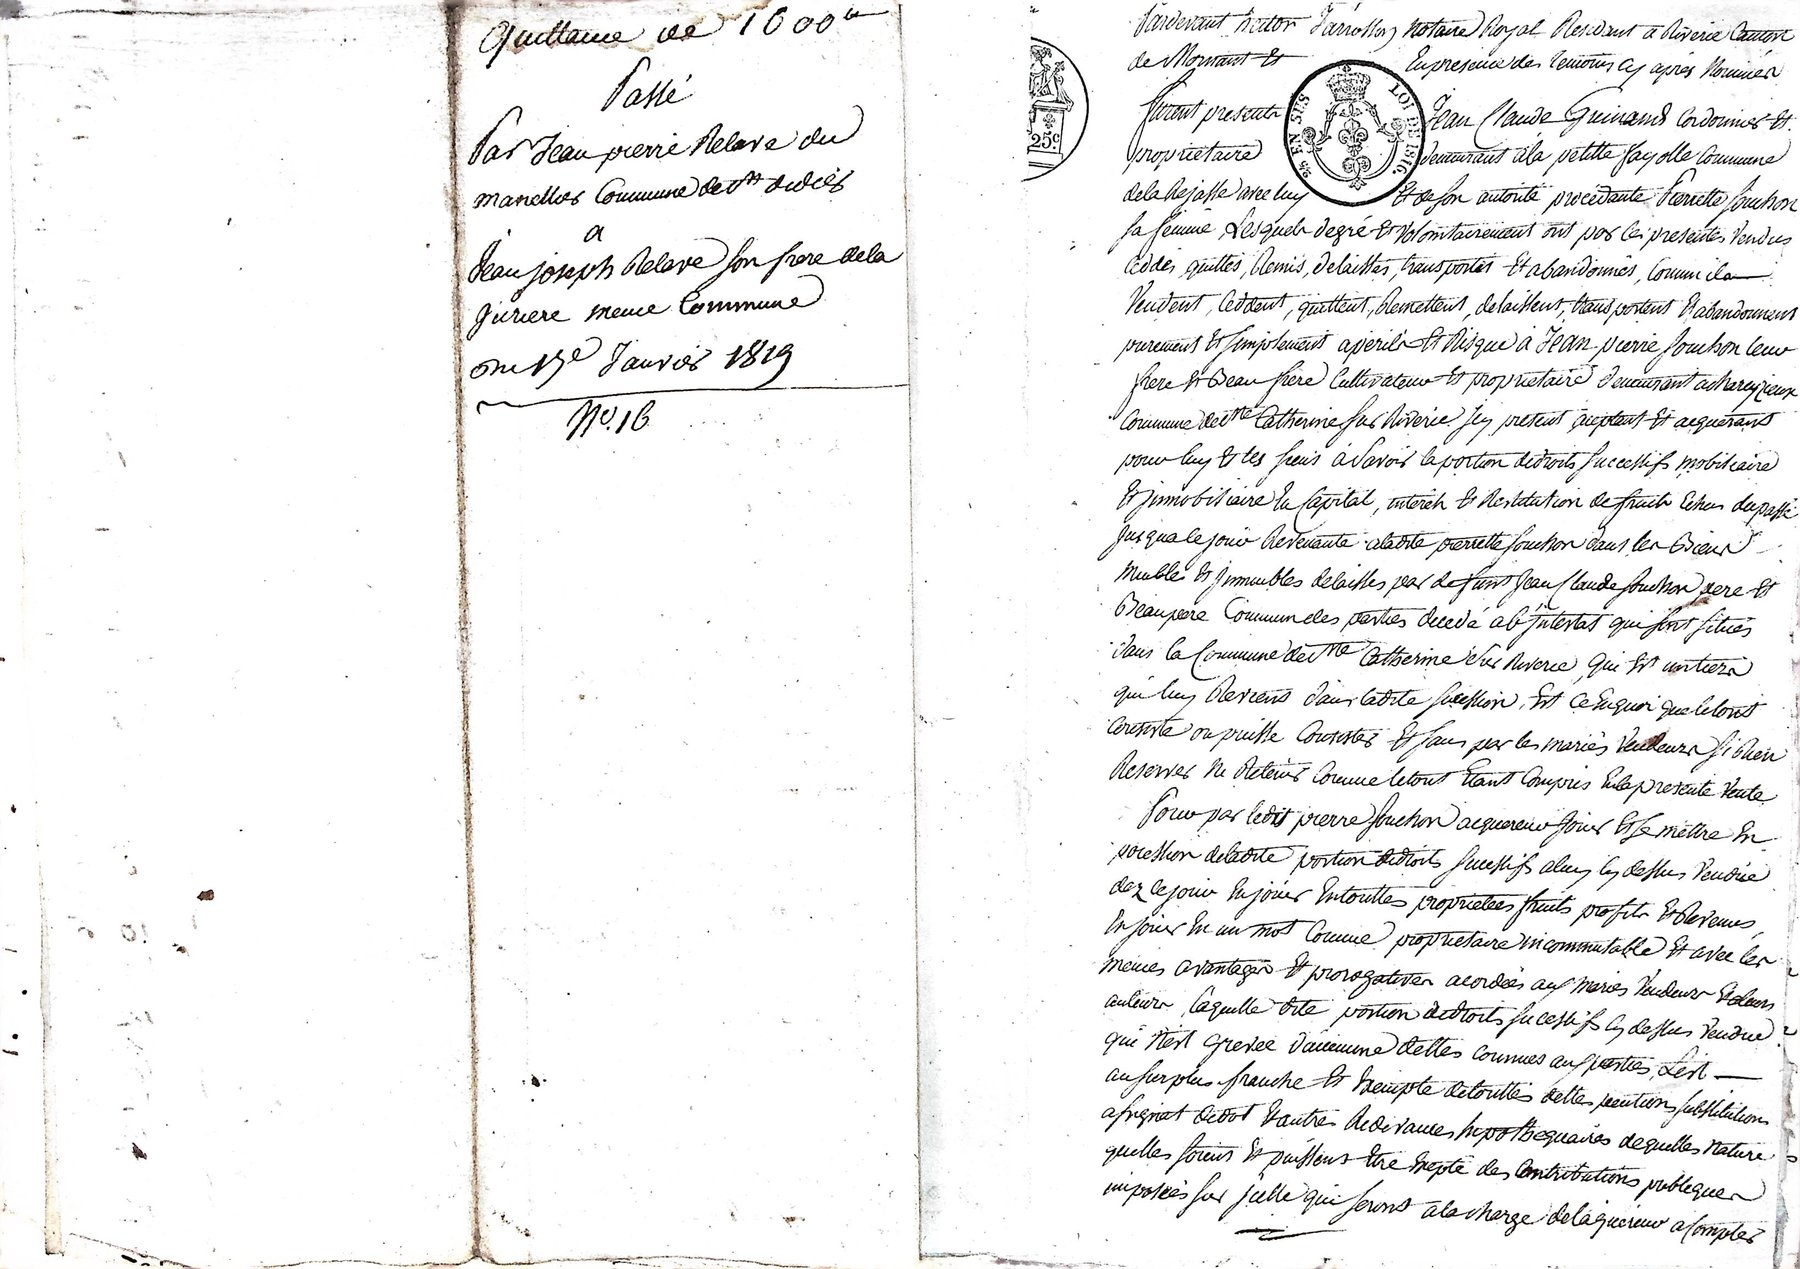 Quittance de 1600 lt
Passé
Par Jean pierre Relave du
Commune de St didier
a
Jean joseph Relave son frere de la
meme Commune
Janvier 1819
No. 16
Pardevant notaire Royal Residant a Riverie Canton
de Mornant Et En presence des temoins cy après Nommés
furent presents Jean Claude Guinand Cordonnier Et
proprietaire demeurant à la petite fayolle Commune
de la Rajasse avec luy Et de son autorité procedante Pierrette Souchon
sa femme, Lesquels de gré Et Volontairement ont par les presentes Vendus
Cédés, quittes, Remis, delaissés, transportés Et abandonnés, Comme ils
Vendent, Cedent, quittent, Remettent, delaissent, transportent Et abandonnent
purement Et simplement a perils Et Risque à Jean pierre Souchon leur
frere Et Beau frere Cultivateur Et proprietaire demeurant a
Commune de Ste Catherine sur Riverie Icy present aceptant Et acquerant
pour luy Et les siens à Savoir la portion de droits successifs mobiliaire
Et immobiliaire En Capital, interets Et Restitution de fruits Echus du passé
jusqua le jour Revenante a ladite pierrette Souchon dans les Biens
meubles Et immeubles delaissés par defunt Jean Claude Souchon pere Et
Beaupere Commun des parties decedé ab Intestat qui sont situés
dans la Commune de Ste Catherine sur Riverie, qui Est un tiers
qui luy Reviens dans ladite sucession, Est Ce En quoi que le tout
Consiste ou puisse Consister Et sans par les mariés Vendeurs si Rien
Reserver Ni Retenir Comme le tout Etant Compris En la presente Vente
Pour par ledit pierre Souchon acquereur jouir Et se mettre En
pocession de ladite portion de droits sucessifs a luy cy dessus Vendue
dez ce jour En jouir En touttes proprietées fruits profits Et Revenus
En jouir En un mot Comme proprietaire incommutable Et avec les
memes avantages Et prerogatives acordées aux mariés Vendeurs Et a leurs
auteurs, laquelle dite portion de droits sucessifs cy dessus Vendue
qui n'est grevée d'aucune dettes connues aux parties, L'est
au surplus franche Et Exempte de touttes dettes pentions substitution
de dot Et autres Redevances hypothequaires de quelles Nature
quelles soient Et puissent Etre Exepté des Contributions publiques
imposées sur icelle qui seront a la charge de laquereur a Compter
25 c
EN SUS
LOI DE 1816